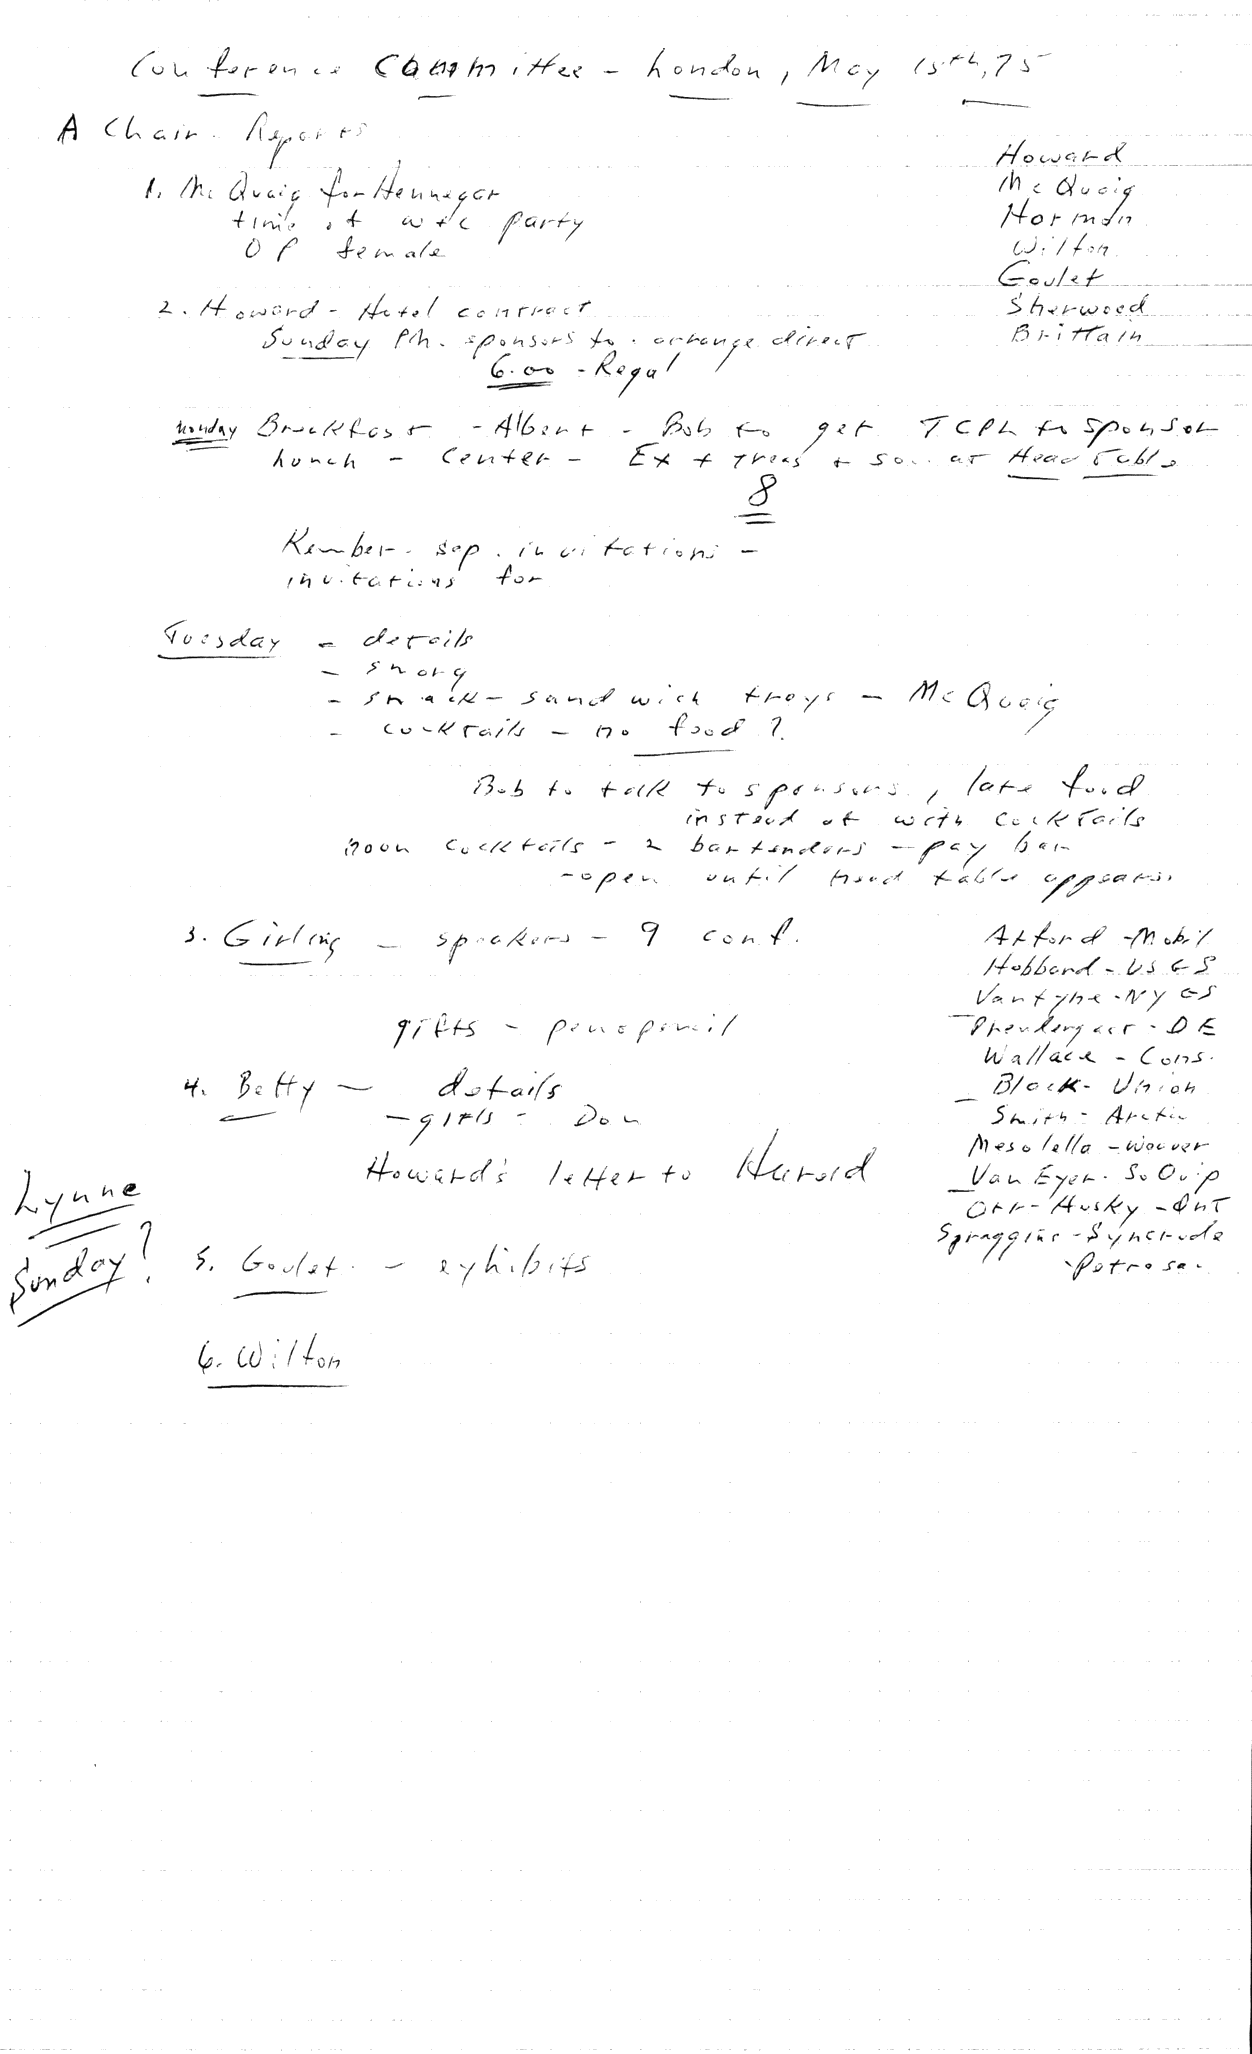 Conference Committee - London, May 15th, 75
A Chair. Reports
Howard
McQuaig
Norman
Wilton
Goulet
Sherwood
Brittain
1. McQuaig for Hennegar
time of party
OP female
2. Howard - Hotel contract
Sunday Ph. sponsors to arrange direct
6.00 - Regal
Monday Breakfast - Albert - Bob to get TCPL to sponsor
Lunch - Center - Ex + Treas + at Head Table
8
Kember. sep. invitations -
invitations for
Tuesday - details
- smorg
- snack - sandwich trays - McQuaig
- cocktails - no food?
Bob to talk to sponsors, late food
instead of with cocktails
noon cocktails - 2 bartenders - pay bar
- open until head table appears.
3. Girling - speakers - 9 conf.
gifts - pen & pencil
Axford - Mobil
Hobbard - USGS
Van Tyne - NYGS
Prendergast - DE
Wallace - Cons.
Block - Union
Smith - Arctic
Mesolella - Weaver
Van Eyer. SoQuip
Orr - Husky - Ont
Spraggins - Syncrude
- Petrosar
4. Betty - details
- gifts - Don
Howard's letter to Harold
Lynne
Sunday?
5. Goulet. - exhibits
6. Wilton